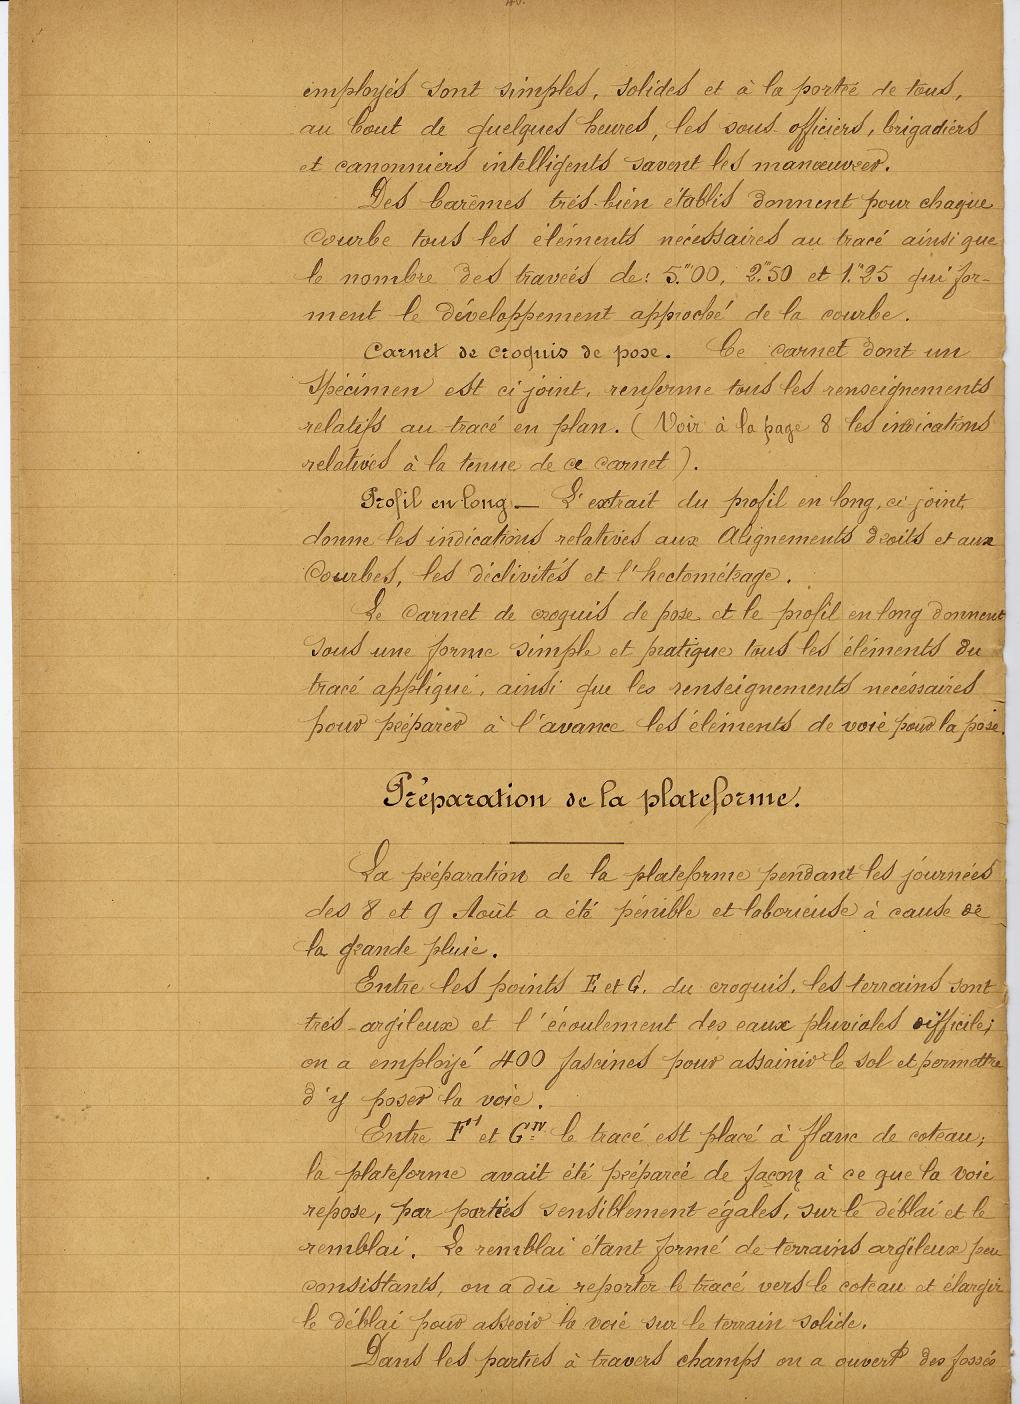 employés sont simples, solides et à la portée de tous,
au bout de quelques heures, les sous-officiers, brigadiers
et canonniers intelligents savent les manœuvrer.
Des barêmes trés-bien établis donnent pour chaque
courbe tous les éléments nécessaires au tracé ainsi que
le nombre des travées de: 5.m00, 2.m50 et 1.m25 qui for-
ment le développement approché de la courbe.
Carnet de croquis de pose. Ce carnet dont un
spécimen est ci joint, renferme tous les renseignements
relatifs au tracé en plan. (Voir à la page 8 les indications
relatives à la tenue de ce carnet).
Profil en long — L'extrait du profil en long, ci joint,
donne les indications relatives aux Alignements droits et aux
Courbes, les déclivités et l'hectométrage.
Le Carnet de croquis de pose et le profil en long donnent
sous une forme simple et pratique tous les éléments du
tracé appliqué, ainsi que les renseignements necéssaires
pour préparer à l'avance les éléments de voie pour la pose.
Préparation de la plateforme.
La préparation de la plateforme pendant les journées
des 8 et 9 Août a été pénible et laborieuse à cause de
la grande pluie.
Entre les points E et G. du croquis, les terrains sont
trés-argileux et l'écoulement des eaux pluviales difficile;
on a employé 400 fascines pour assainir le sol et permettre
d'y poser la voie.
Entre F' et G.IV le tracé est placé à flanc de coteau;
la plateforme avait été préparée de façon à ce que la voie
repose, par parties sensiblement égales, sur le déblai et le
remblai. Le remblai étant formé de terrains argileux peu
consistants, on a dû reporter le tracé vers le coteau et élargir
le déblai pour asseoir la voie sur le terrain solide.
Dans les parties à travers champs on a ouvert des fossés